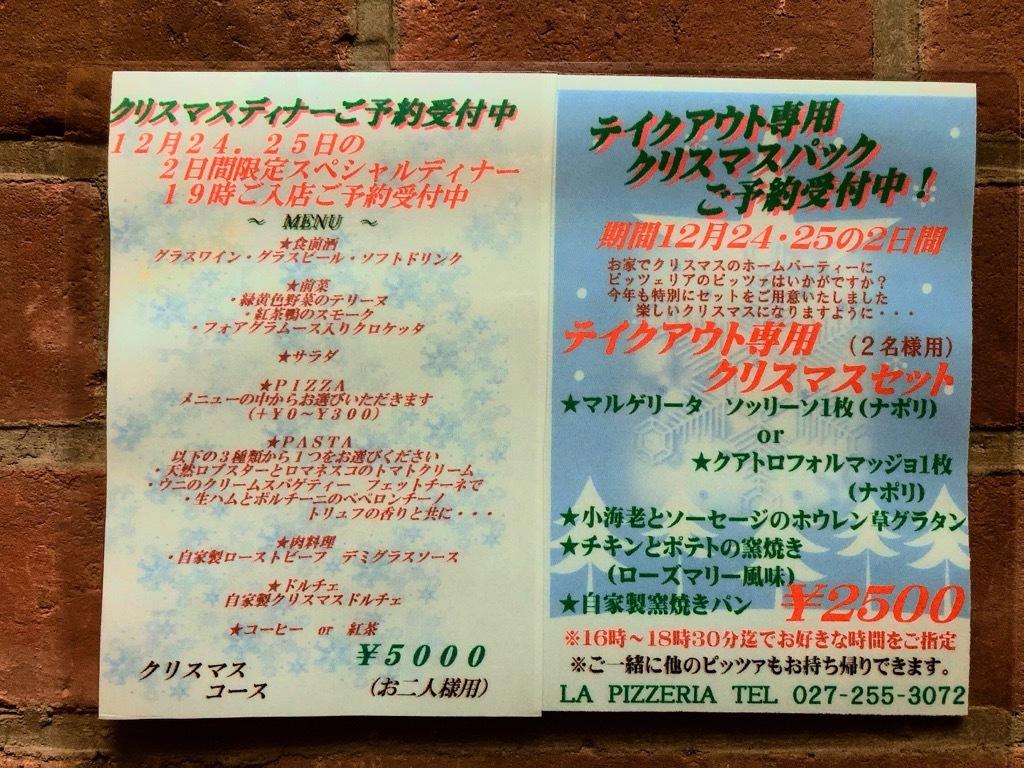 クリスマスディナーご予約受付中
12月24．25日の
2日間限定スペシャルディナー
19時ご入店ご予約受付中
～ MENU ～
★食前酒
グラスワイン・グラスビール・ソフトドリンク
★前菜
・緑黄色野菜のテリーヌ
・紅茶鴨のスモーク
・フォアグラムース入りクロケッタ
★サラダ
★PIZZA
メニューの中からお選びいただきます
（＋￥0～￥300）
★PASTA
以下の3種類から1つをお選びください
・天然ロブスターとロマネスコのトマトクリーム
・ウニのクリームスパゲティー　フェットチーネで
・生ハムとポルチーニのペペロンチーノ
トリュフの香りと共に・・・
★肉料理
・自家製ローストビーフ　デミグラスソース
★ドルチェ
自家製クリスマスドルチェ
★コーヒー　or　紅茶
￥5000
クリスマス
コース
（お二人様用）
テイクアウト専用
クリスマスパック
ご予約受付中！
期間12月24・25の2日間
お家でクリスマスのホームパーティーに
ピッツェリアのピッツァはいかがですか？
今年も特別にセットをご用意いたしました
楽しいクリスマスになりますように・・・
テイクアウト専用　（2名様用）
クリスマスセット
★マルゲリータ　ソッリーソ1枚（ナポリ）
or
★クアトロフォルマッジョ1枚
（ナポリ）
★小海老とソーセージのホウレン草グラタン
★チキンとポテトの窯焼き
（ローズマリー風味）
★自家製窯焼きパン　￥2500
※16時～18時30分迄でお好きな時間をご指定
※ご一緒に他のピッツァもお持ち帰りできます。
LA PIZZERIA TEL 027-255-3072